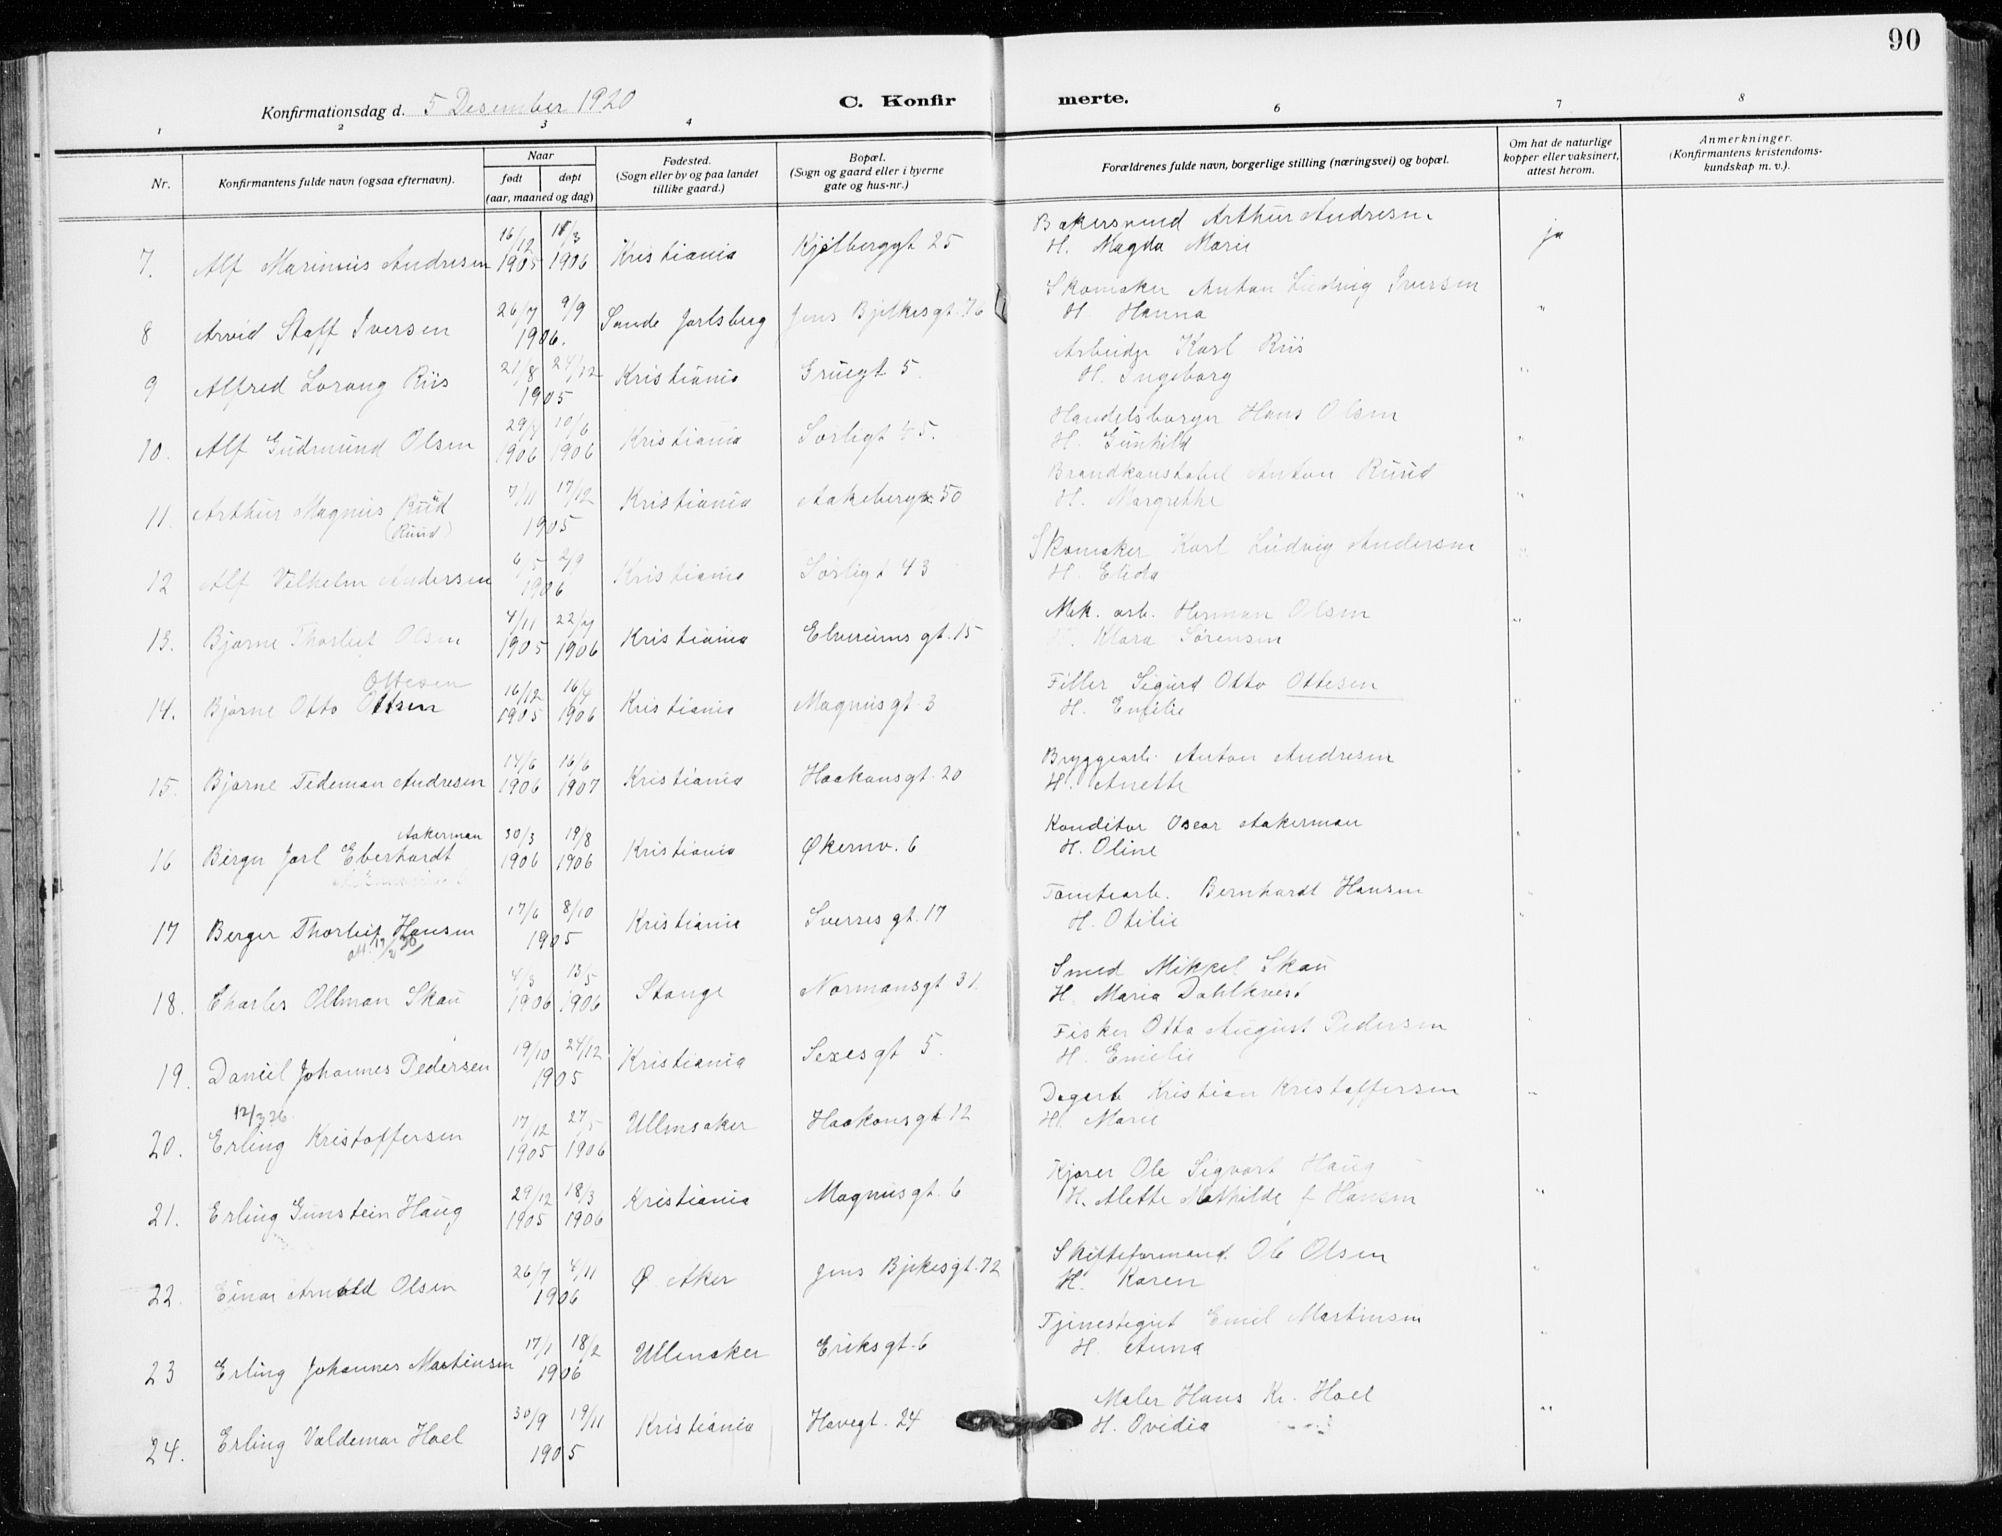 90
Konfirmationsdag d. 5 Desember 1920
C. Konfirmerte.
1 2 3 4 6 7 8
Nr. Konfirmantens fulde navn (ogsaa efternavn). Naar født døpt (aar, maaned og dag) Fødested. (Sogn eller by og paa landet tillike gaard.) Bopæl. (Sogn og gaard eller i byerne gate og hus-nr.) Forældrenes fulde navn, borgerlige stilling (næringsvei) og bopæl. Om hat de naturlige kopper eller vaksinert, attest herom. Anmerkninger. (Konfirmantens kristendomskundskap m. v.).
7. Alf Marinius Andresen 16/12 1905 18/3 1906 Kristiania Kjølberggt 25 Bakersvend Arthur Andresen H. Magda Marie ja
8 Arvid Staff Iversen 26/7 9/9 1906. Sande Jarlsberg Jens Bjelkesgt. 76 Skomaker Anton Ludvig Iversen H Hanna "
9 Alfred Lorang Riis 21/8 24/12 1905 Kristiania Gruegt 5 Arbeider Karl Riis H. Ingeborg "
10. Alf Gudmund Olsen 1906 10/6 1906 Kristiania Sørligt 45. Handelsborger Hans Olsen H. Gunhild "
11. Arthur Magnus Rud (Ruud) 7/11 17/12 1905 Kristiania Aakebergv. 50 Brandkonstabel Anton Ruud H. Margrethe "
12 Alf Vilhelm Andersen 6/5 2/9 1906 Kristiania Sørligt 43 Skomaker Karl Ludvig Andersen H. Elida "
13. Bjarne Thorleif Olsen 4/11 1905 1906 Kristiania Elverumsgt. 15 Mek. arb. Herman Olsen H. Klara Sørensen "
14. Bjarne Otto Ottsen Ottesen 16/12 1905 16/4 1906 Kristiania Magnusgt. 3 Filler Sigurd Otto Ottesen H. Emilie "
15. Bjarne Tideman Andresen 14/6 1906 16/6 1907 Kristiania Haakonsgt. 20 Bryggearb. Anton Andresen H. Anette "
16 Birger Jarl Eberhardt Aakerman 30/3 1906 19/8 1906 Kristiania Økernv. 6 Konditor Oscar Aakerman H. Oline "
17 Berger Thorleif Hansen 17/6 8/10 1905 Kristiania Sverresgt. 17 Tomtearb. Bernhardt Hansen H. Otilie "
18. Charles Ollman Skau 4/3 1906 13/5 1906 Stange Normansgt 31. Smed Mikkel Skau H. Maria Dahlkvest
19. Daniel Johannes Pedersen 19/10 24/12 1905 Kristiania Sexesgt 5. Fisker Otto August Pedersen H. Emilie
20. Erling Kristoffersen 12/3 26 17/12 1905 27/5 1906 Ullensaker Haakonsgt 12 Kristian Kristoffersen H. Marie "
21. Erling Gunstein Haug 29/12 1905 18/3 1906 Kristiania Magnusgt. 6 Kjører Ole Sigvart Haug H. Alette Mathilde f Hansen "
22. Einar Arnold Olsen 26/7 4/11 1906 Ø. Aker Jens Bjekesgt. 72 Skifteformand Ole Olsen H. Karen "
23 Erling Johannes Martinsen 17/1 18/2 1906 Ullensaker Eriksgt. 6 Emil Martinsen H. Anna "
24. Erling Valdemar Hoel 30/9 19/11 1905 Kristiania Havegt. 24 Maler Hans Kr. Hoel H. Ovidia "